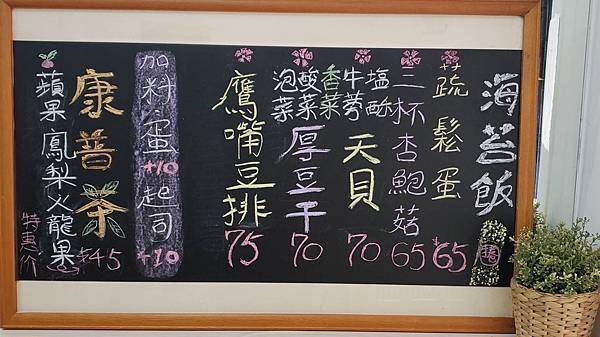 海苔飯
蔬鬆蛋 65
三杯杏鮑菇 65
塩酥
牛蒡
天貝 70
香菜
酸菜
泡菜
厚豆干 70
鷹嘴豆排 75
加料 蛋+10 起司+10
康普茶 $45
蘋果 鳳梨 火龍果
特惠价